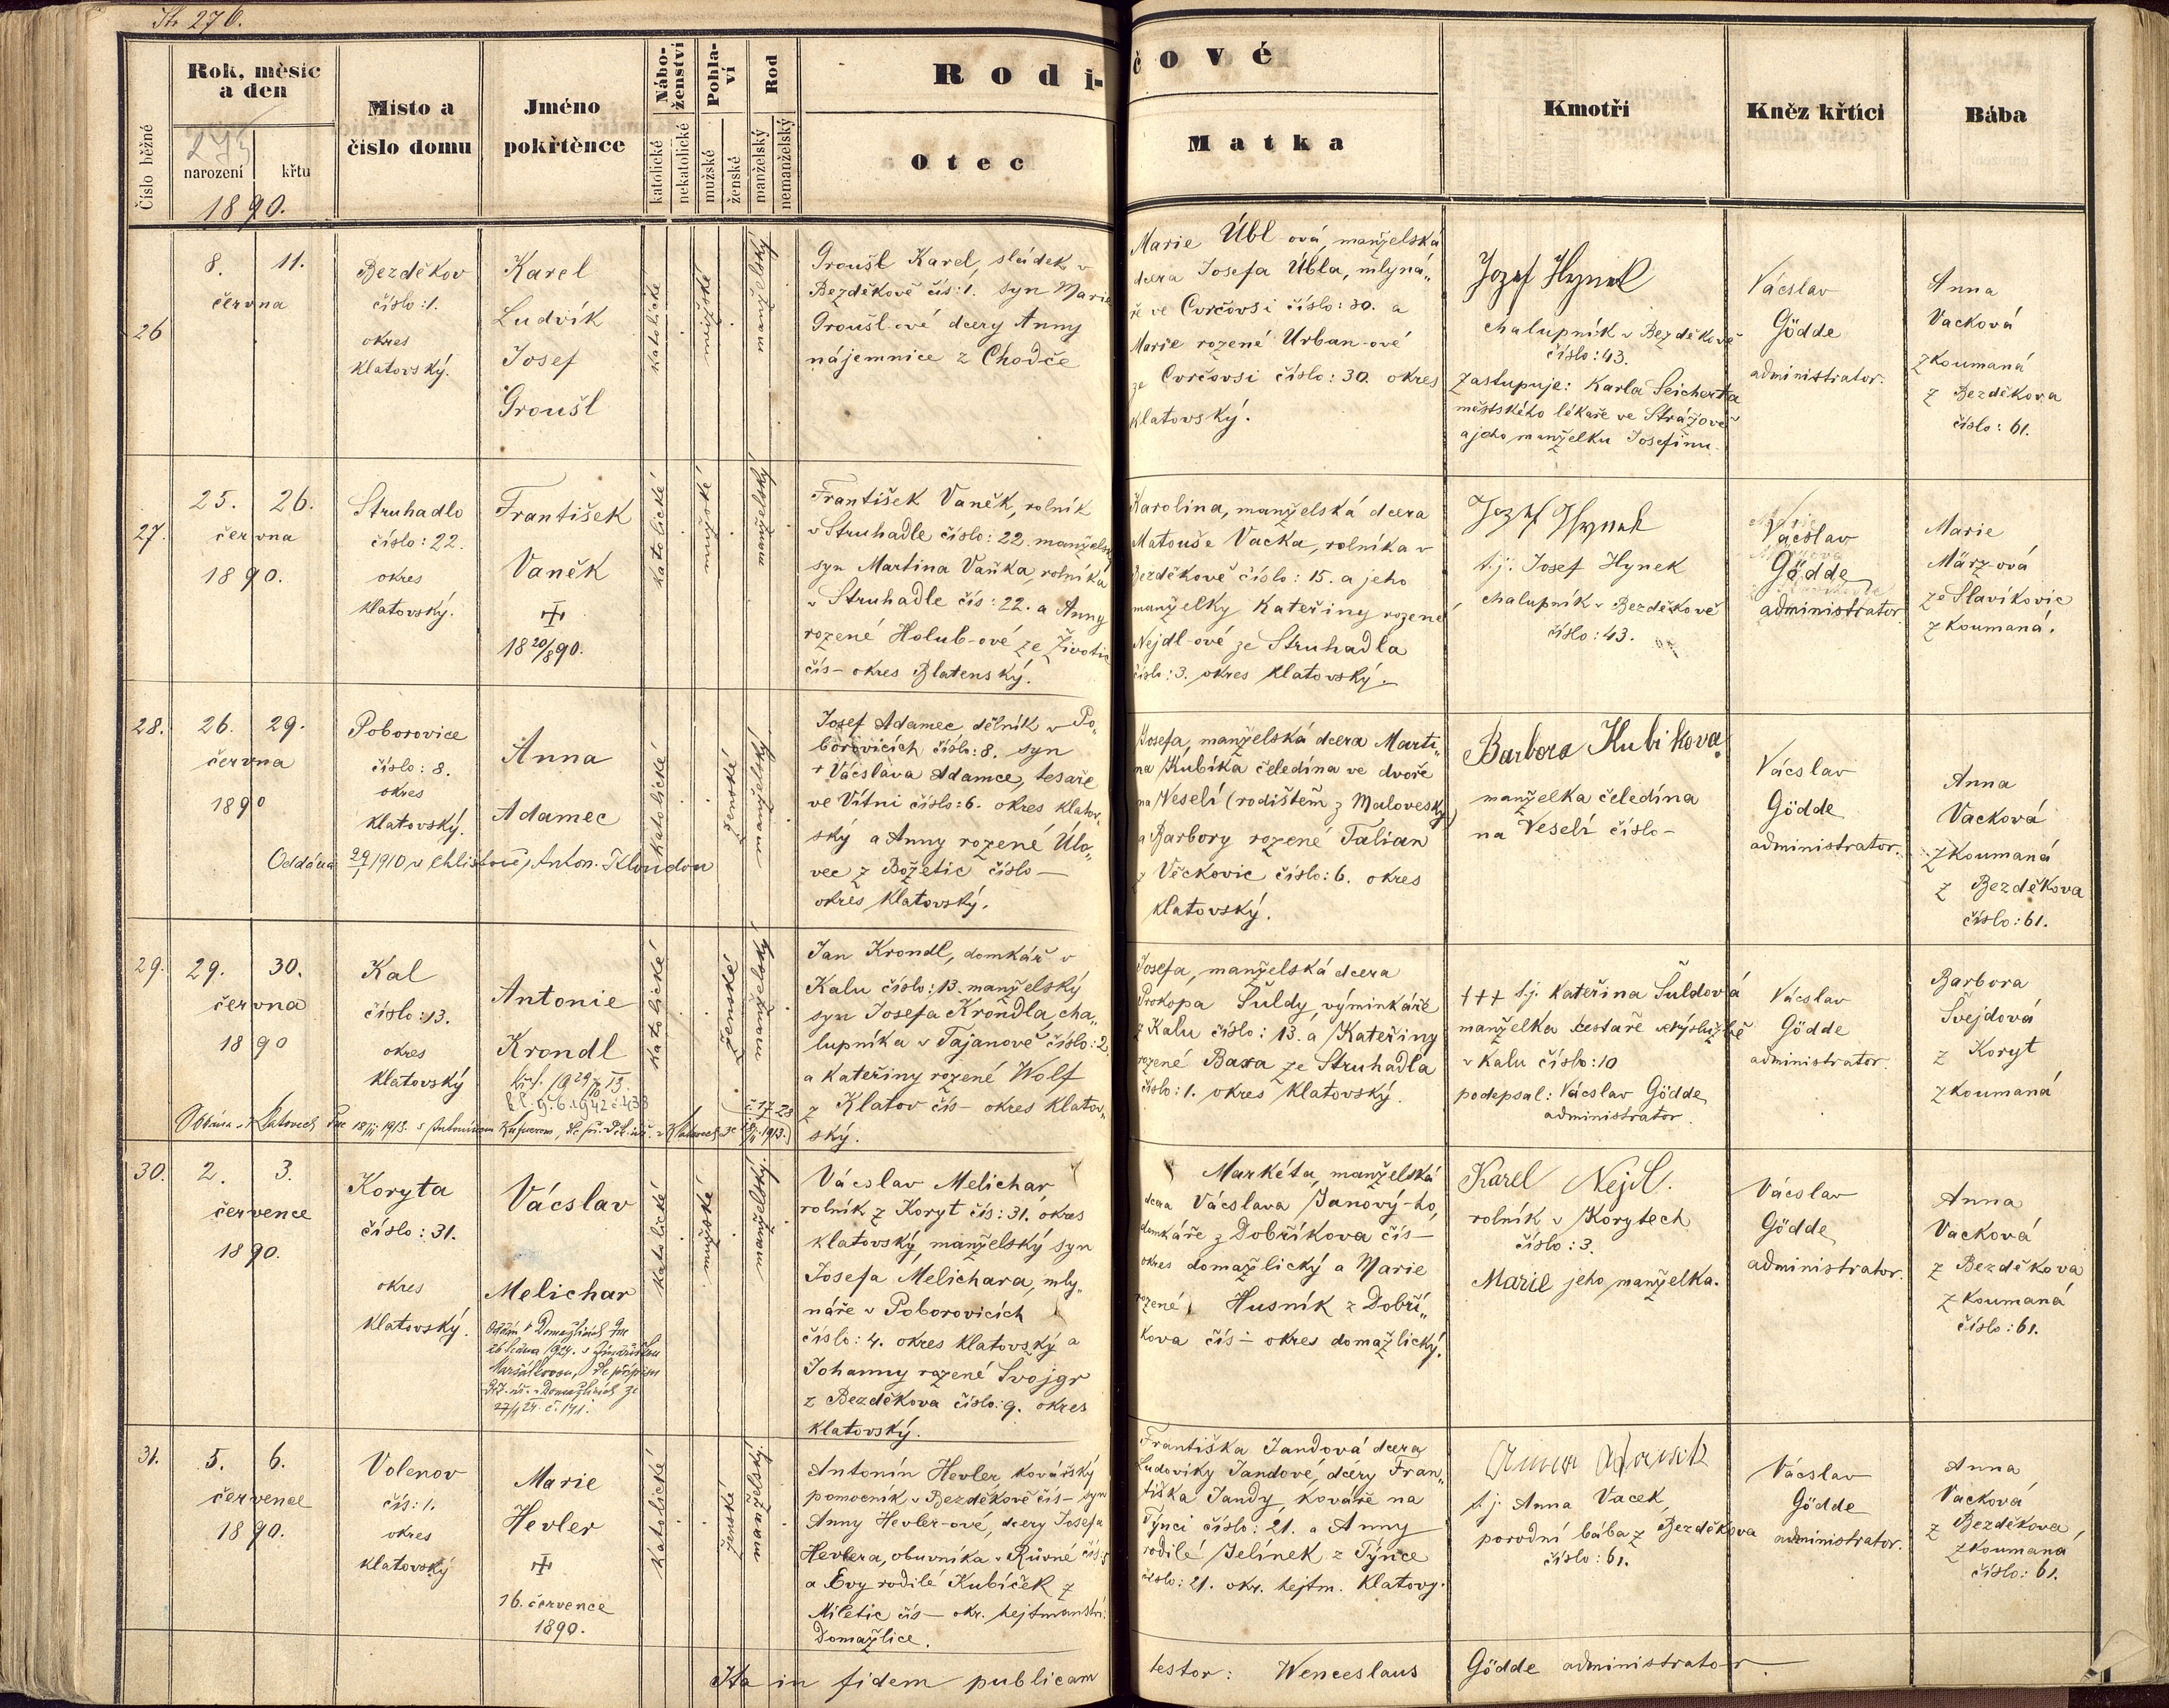 Str 276.
Číslo běžné
Rok, mèsíc
a den
narození
křtu
1890.
Místo a
číslo domu
Jméno
pokřtènce
Nábo-
ženství
katolické
nekatolické
Pohla-
ví
mužské
ženské
Rod
manželský
nemanželský
Rodi-
čové
Otec
Matka
Kmotři
Kněz křtíci
Bába
26
8. 11.
června
Bezděkov
číslo: 1.
okres
klatovský.
Karel
Ludvík
Josef
Groušl
katolické
mužské
manželský
Groušl Karel, sládek v
Bezděkově čís: 1. syn Marie
Groušl-ové dcery Anny
nájemnice z Chodče
Marie Übl-ová, manželská
dcera Josefa Übla, mlyná„
ře ve Cvrčovsi číslo: 30. a
Marie rozené Urban-ové
ze Cvrčovsi číslo: 30. okres
klatovský.
Jozef Hynek
chalupník v Bezděkově
číslo: 43.
zastupuje: Karla Seicherta
městského lékaře ve Strážově
a jeho manželku Josefinu.
Vácslav
Gödde
administrator.
Anna
Vacková
zkoumaná
z Bezděkova
číslo: 61.
27.
25. 26.
června
1890.
Struhadlo
číslo: 22.
okres
klatovský.
František
Vaněk
18 20/8 90.
katolické
mužské
manželský
František Vaněk, rolník
v Struhadle číslo: 22. manželský
syn Martina Vaňka, rolníka
v Struhadle čís: 22. a Anny
rozené Holub-ové ze Životic
čís – okres Blatenský.
Karolina, manželská dcera
Matouše Vacka, rolníka v
Bezděkově číslo: 15. a jeho
manželky Kateřiny rozené
Nejdl-ové ze Struhadla
číslo: 3. okres klatovský.
Jozef Hynek
t.j. Josef Hynek
chalupník v Bezděkově
číslo: 43.
Vácslav
Gödde
administrator
Marie
März-ová
ze Slavíkovic
zkoumaná.
28.
26. 29.
června
1890
Poborovice
číslo: 8.
okres
klatovský.
Anna
Adamec
Oddána 29/1 1910 v Chlistově s Anton. Kloudou
katolické
ženské
manželský
Josef Adamec dělník v Po„
borovicích číslo: 8. syn
+ Vácslava Adamce, tesaře
ve Vítni číslo: 6. okres klatov„
ský a Anny rozené Úlo„
vec z Božetic číslo –
okres klatovský.
Josefa, manželská dcera Marti„
na Kubíka čeledína ve dvoře
na Veselí (rodištěm z Malovesky)
a Barbory rozené Talian
z Věckovic číslo: 6. okres
klatovský.
Barbora Kubikova
manželka čeledína
na Veselí číslo –
Vácslav
Gödde
administrator.
Anna
Vacková
zkoumaná
z Bezděkova
číslo: 61.
29.
29. 30.
června
1890
Kal
číslo: 13.
okres
klatovský
Antonie
Krondl
Oddána v Klatovech dne 18/II 1913. s Antonínem
v Klatovech ze 18/II 1913.
katolické
ženské
manželský
Jan Krondl, domkář v
Kalu číslo: 13. manželský
syn Josefa Krondla cha„
lupníka v Tajanově číslo: 2
a Kateřiny rozené Wolf
z Klatov čís – okres klatov„
ský.
Josefa, manželská dcera
Prokopa Šuldy, výminkáře
z Kalu číslo: 13. a Kateřiny
rozené Baxa ze Struhadla
číslo: 1. okres klatovský.
+++ t.j. Kateřina Šuldová
manželka cestaře ve výslužbě
v Kalu číslo: 10
podepsal: Vácslav Gödde
administrator.
Vácslav
Gödde
administrator.
Barbora
Švejdová
z Koryt
zkoumaná
30.
2. 3.
července
1890.
Koryta
číslo: 31.
okres
klatovský.
Vácslav
Melichar
Oddán v Domažlicích dne
26 ledna 1924. s
dle přípisu
v Domažlicích ze
27/1 24. č. 171.
katolické
mužské
manželský.
Vácslav Melichar
rolník z Koryt čís: 31. okres
klatovský, manželský syn
Josefa Melichara, mly„
náře v Poborovicích
číslo: 4. okres klatovský a
Johanny rozené Svojgr
z Bezděkova číslo: 9. okres
klatovský.
Markéta, manželská
dcera Vácslava Janový-ho,
domkáře z Dobříkova čís –
okres domažlický a Marie
rozené Husník z Dobří„
kova čís – okres domažlický.
Karel Nejdl.
rolník v Korytech
číslo: 3.
Marie jeho manželka.
Vácslav
Gödde
administrator.
Anna
Vacková
z Bezděkova
zkoumaná
číslo: 61.
31.
5. 6.
července
1890.
Volenov
čís: 1.
okres
klatovský
Marie
Hevler
16. července
1890.
katolické
ženské
manželský.
Antonín Hevler, kovářský
pomocník v Bezděkově čís – syn
Anny Hevler-ové, dcery Josefa
Hevlera, obuvníka v Růvné čís: 5
a Evy rodilé Kubíček z
Miletic čís – okr. hejtmanství:
Domažlice.
Františka Jandová dcera
Ludoviky Jandové, dcery Fran„
tiška Jandy, kováře na
Týnci číslo: 21. a Anny
rodilé Jelínek z Týnce
číslo: 21. okr. hejtm. Klatovy.
t.j. Anna Vacek,
porodní bába z Bezděkova
číslo: 61.
Vácslav
Gödde
administrator.
Anna
Vacková
z Bezděkova,
zkoumaná
číslo: 61.
Ita in fidem publicam
testor: Wenceslaus Gödde administrator.